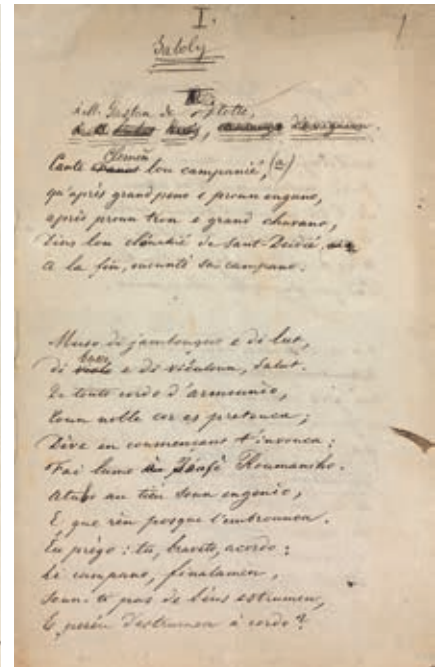 I.
1
Saboly
à M. Gaston de Flotte,
Clemèn
Cante lou campanié, (a)
qu'après grand peno e proun engano,
après proun tron e grand chavano,
Dins lou clouchié de Sant-Deidié,
A la fin, encanté sa campano.
Muso di jambougno e di lut,
di e di viéuloun, salut.
De touto cordo d'armounio,
toun noble cor es pretouca;
Dève en coumençant t'invouca:
Fai lume Roumansho.
au tièu soun engenio,
E que rèn posque l'embrounca.
Eu prègo: tu, braveto, acordo;
Li campano, finalamen,
Soun-ti pas de bèus estrumen,
E perèu d'estrumen à cordo?